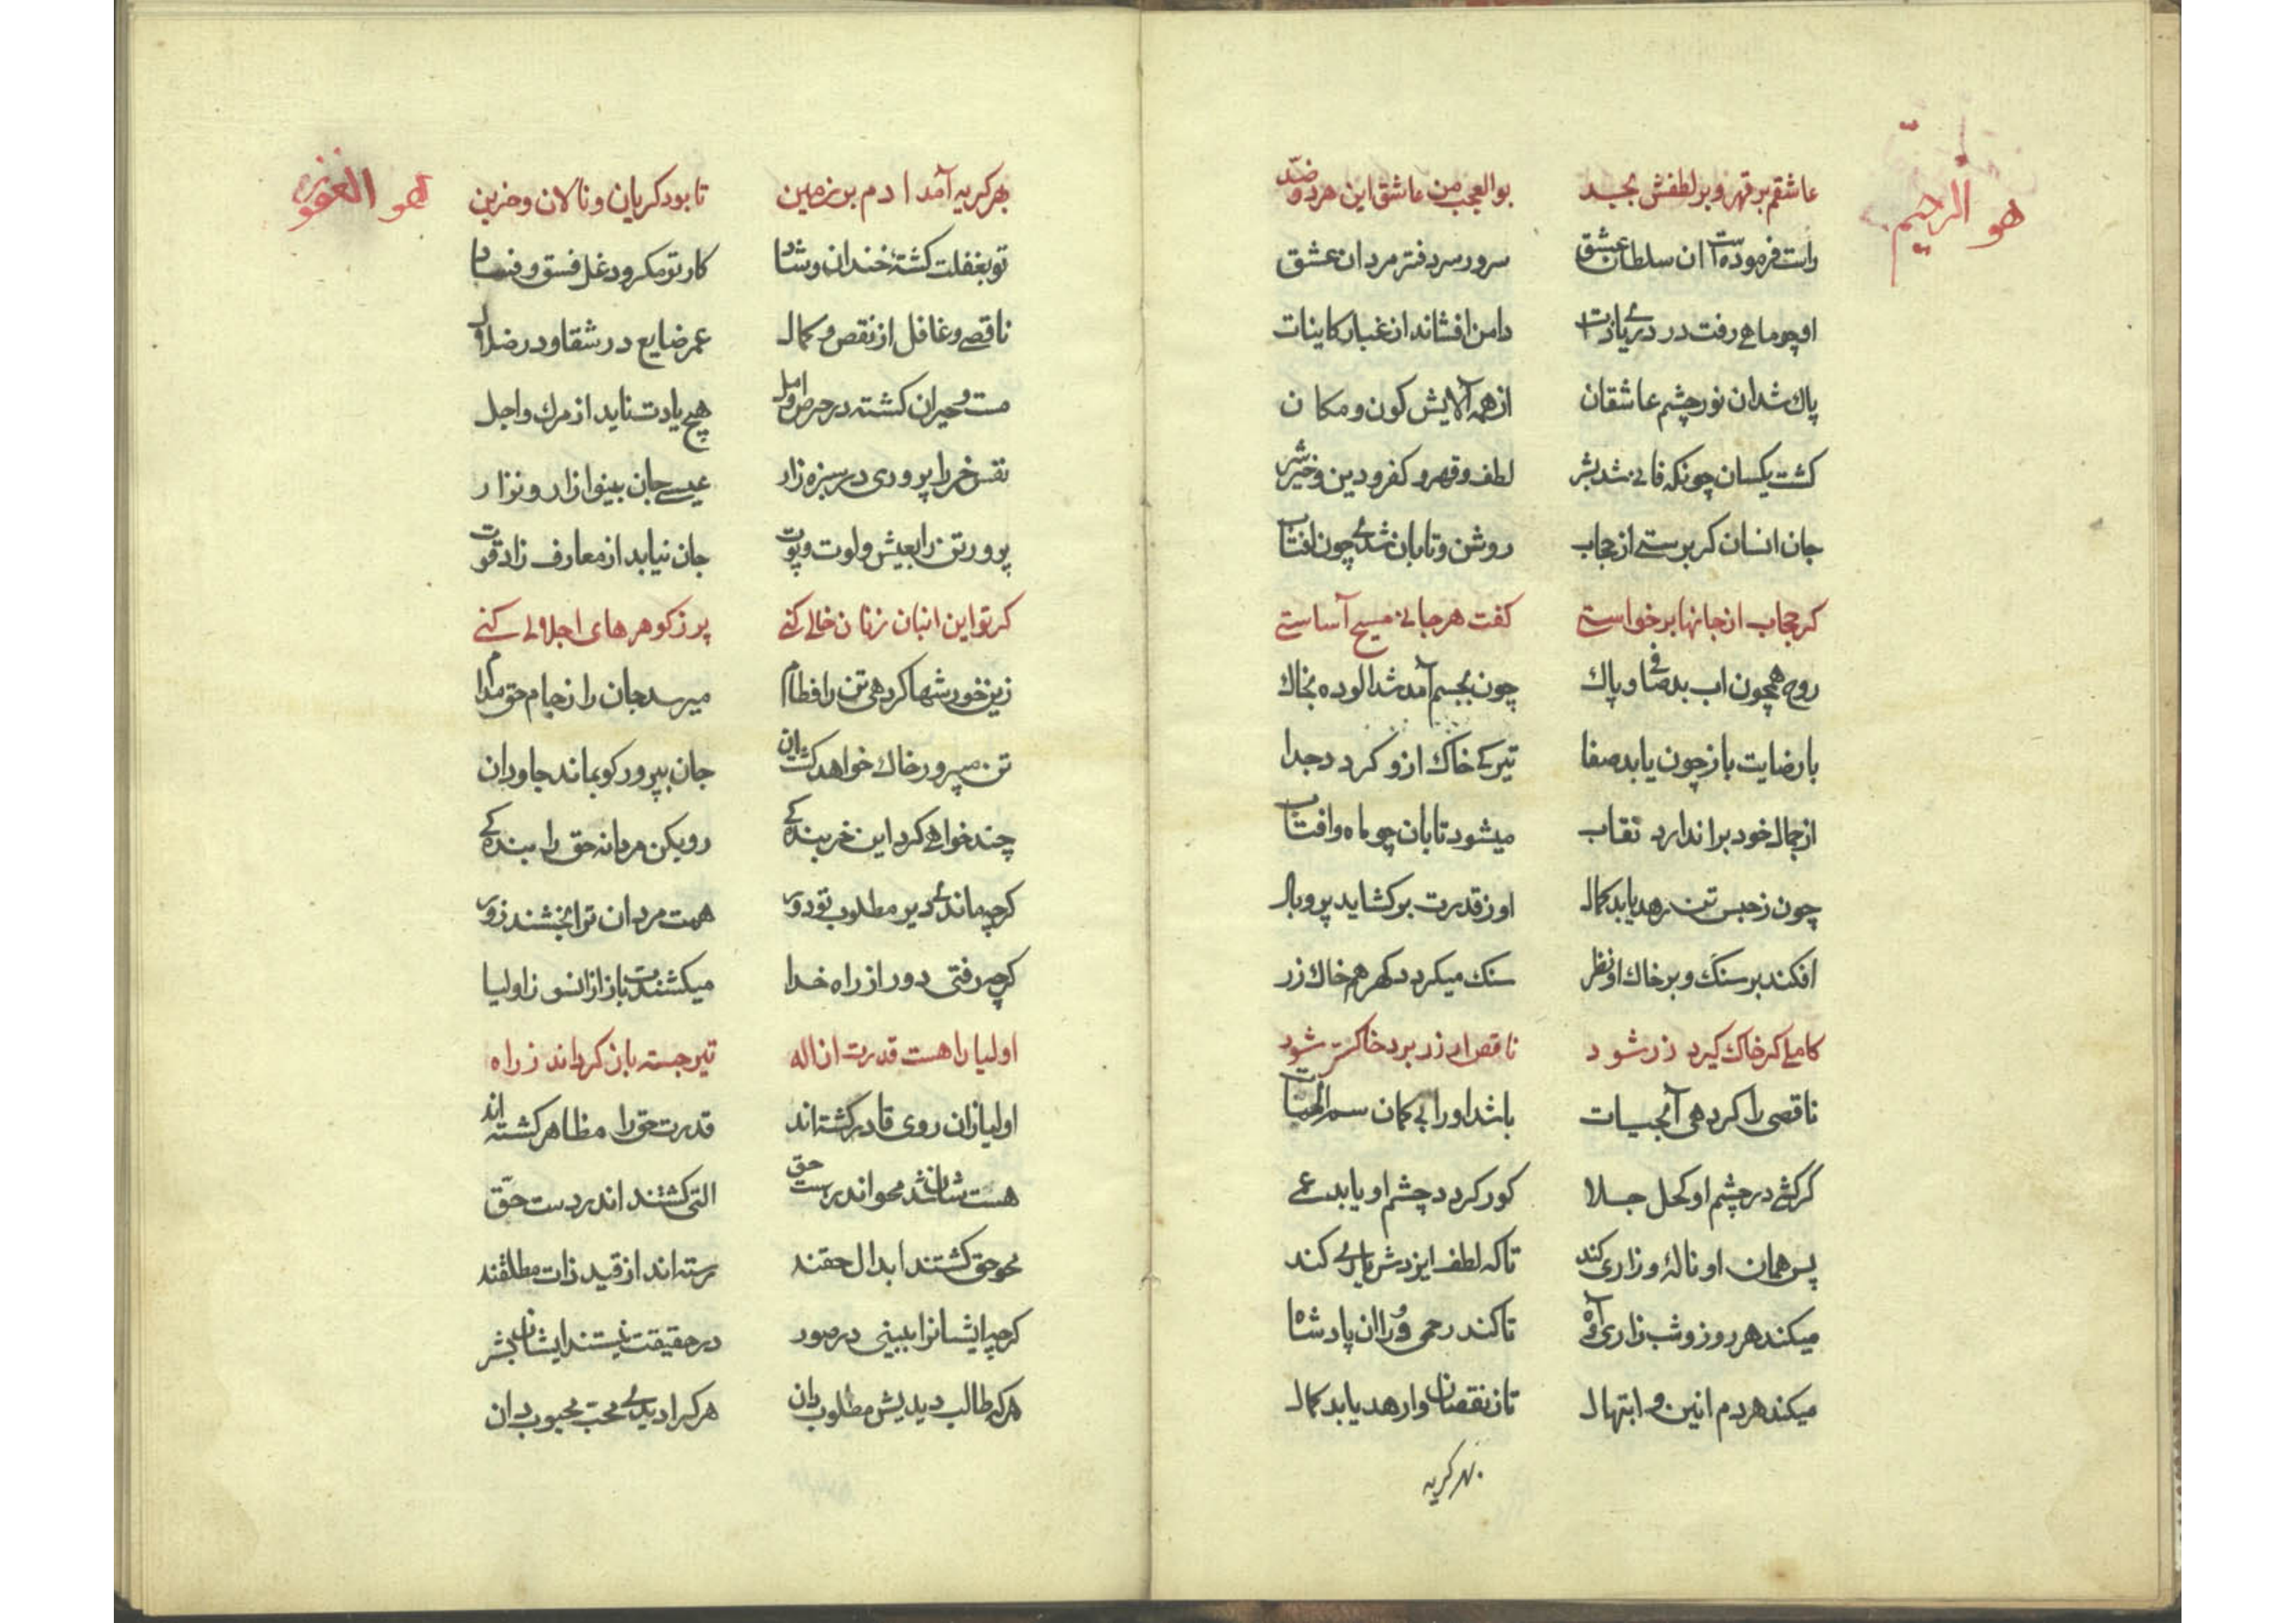 هو الرحیم
عاشقم بر قهر و بر لطفش بجد بوالعجب من عاشق این هر دو ضد
راست فرمودست ان سلطان عشق سرور سردفتر مردان عشق
او چو ماهی رفت در دریای ذات دامن افشاند از غبار کاینات
پاك شد ان نور چشم عاشقان از همه آلایش کون و مکان
کشت یکسان چونکه فانی شد بشر لطف و قهر و کفر و دین و خیر و شر
جان انسان کر برستی از حجاب روشن و تابان شدی چون افتاب
کر حجاب از جانها برخواستی کفت هر جانی مسیح آساستی
روح همچون اب بد صافی و پاك چون بجسم آمد شد الوده بخاك
با رضایت باز چون یابد صفا تیرکی خاک ازو کردد جدا
از جمال خود براندازد نقاب میشود تابان چو ماه و افتاب
چون ز حبس تن رهد یابد کمال او ز قدرت بر کشاید پر و بال
افکند بر سنگ و بر خاك او نظر سنك میکردد کهر هم خاك زر
کاملی کر خاك کیرد زر شود ناقص ار زر برد خاکستر شود
ناقصی را کر دهی آبحیات باشد او را بی کمان سم الحیات
گر کشی در چشم او کحل جلا کور کردد چشم او یابد عمی
پس همان او نالهٔ و زاری کند تا که لطف ایزدش یاری کند
میکند هر روز و شب زاری و آه تا کند رحمی ورا ان پادشاه
میکند هر دم انین و ابتهال تا ز نقصان وا رهد یابد کمال
بهر کریه
هو العزیز
بهر کریه آمد ادم بر زمین تا بود کریان و نالان و حزین
تو بغفلت کشتهٔ خندان و شاد کار تو مکر و دغل فسق و فساد
ناقصی و غافل از نقص و کمال عمر ضایع در شقا و در ضلال
مست و حیران کشته در حرص و امل هیچ یادت ناید از مرك و اجل
نفس خر را پروری در سبزه زار عیسی جان بینوا زار و نزار
پرورد تن را بعیش و لوت و پوت جان نیابد از معارف زاد قوت
کر تو این انبان ز نان خالی کنی پر ز کوهرهای اجلالی کنی
زین خورشها کر دهی تن را فطام میرسد جان را ز جام حق مدام
تن مپرور خاك خواهد کشت ان جان بپرور کو بماند جاودان
چند خواهی کرد این خر بندهکی رو بکن مردانه حق را بندهکی
کرچه ماندی دیر مطلوب تو دور همت مردان ترا بخشند زور
کرچه رفتی دور از راه خدا میکشندت باز از انسو ز اولیا
اولیا را هست قدرت از اله تیر جسته باز کردانند ز راه
اولیا زان روی قادر کشته اند قدرت حق را مظاهر کشته اند
هست شان شد محو اندر هست حق التی کشتند اندر دست حق
محو حق کشتند ابدال حقند رسته اند از قید ذات مطلقند
کرچه ایشانرا ببینی در صور در حقیقت نیستند ایشان بشر
هر که طالب دیدیش مطلوب دان هر کرا دیدی محب محبوب دان